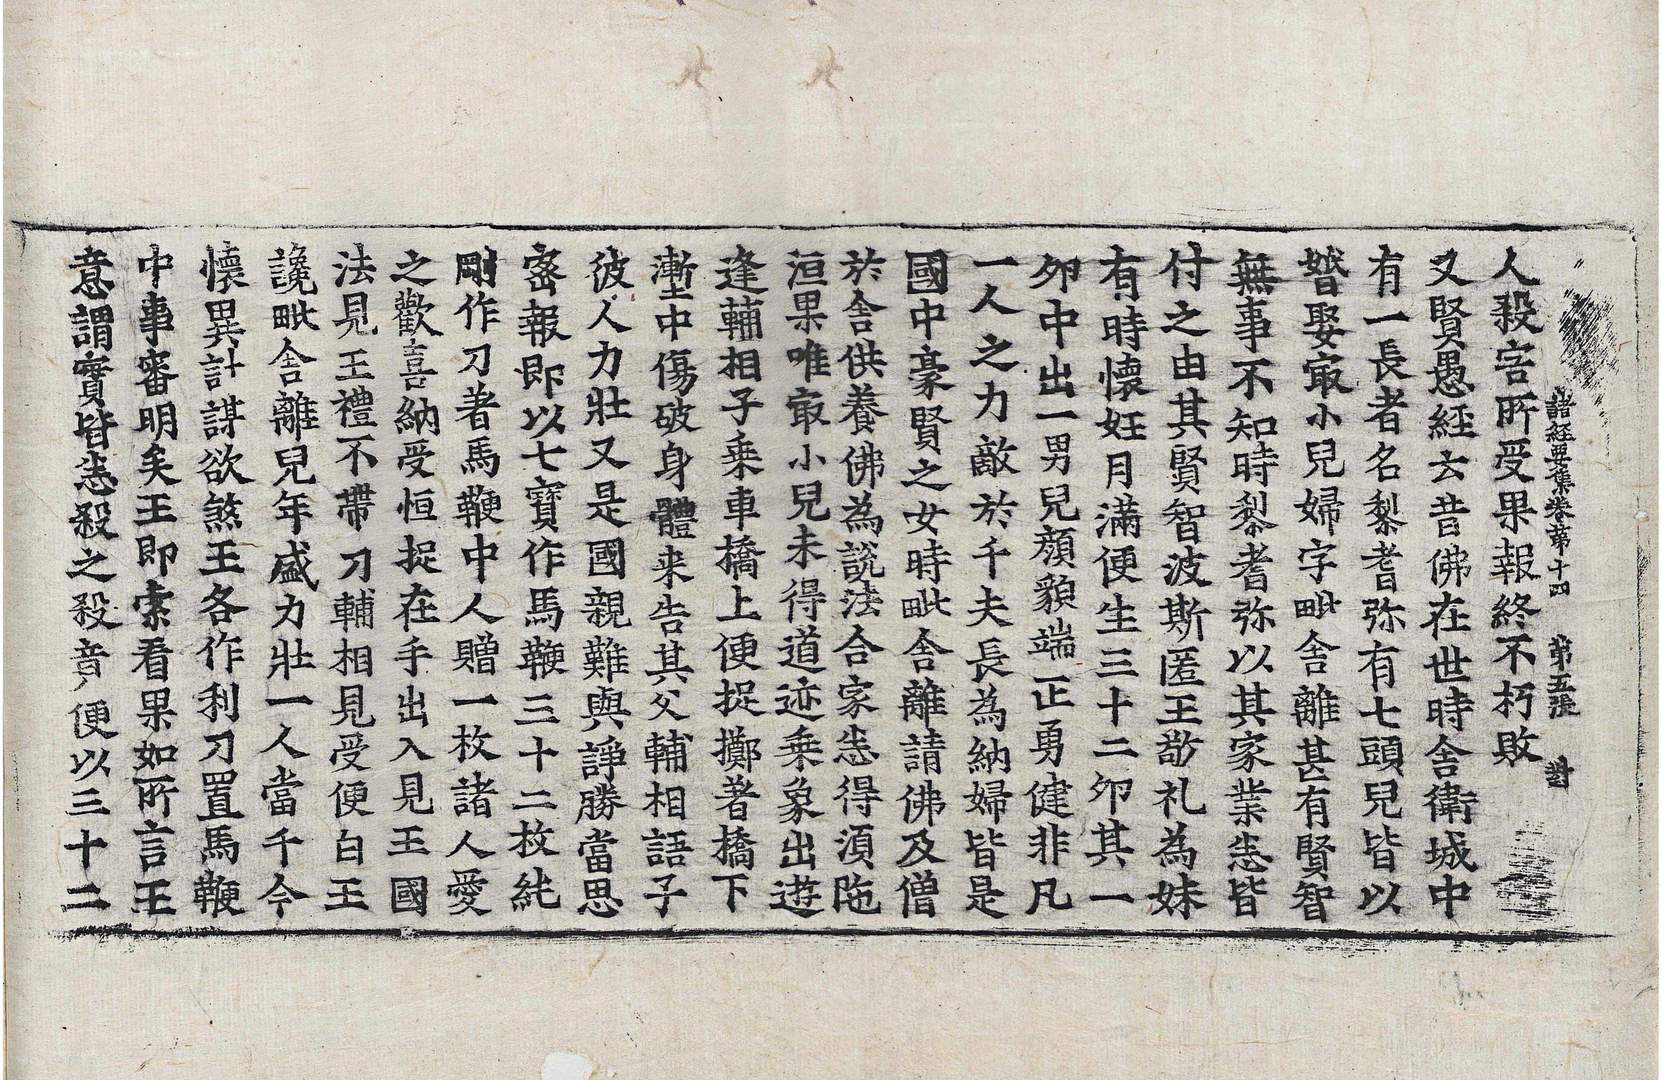 諸經要集卷第十四 第五張
人殺害所受果報終不朽敗
又賢愚經云昔佛在世時舍衛城中
有一長者名黎耆弥有七頭兒皆以
婚娶㝡小兒婦字毗舍離甚有賢智
無事不知時黎耆弥以其家業悉皆
付之由其賢智波斯匿王敬礼為妹
有時懷妊月滿便生三十二卵其一
卵中出一男兒顏貌端正勇健非凡
一人之力敵於千夫長為納婦皆是
國中豪賢之女時毗舍離請佛及僧
於舍供養佛為說法合家悉得湏陁
洹果唯㝡小兒未得道迹乘象出遊
逢輔相子乘車橋上便捉擲著橋下
壍中傷破身體来告其父輔相語子
彼人力壯又是國親難與諍勝當思
密報即以七寶作馬鞭三十二枚純
剛作刀著馬鞭中人贈一枚諸人愛
之歡喜納受恒捉在手出入見王國
法見王禮不帶刀輔相見受便白王
讒毗舍離兒年盛力壯一人當千今
懷異計謀欲煞王各作利刀置馬鞭
中事審明矣王即索看果如所言王
意謂實皆悉殺之殺音便以三十二